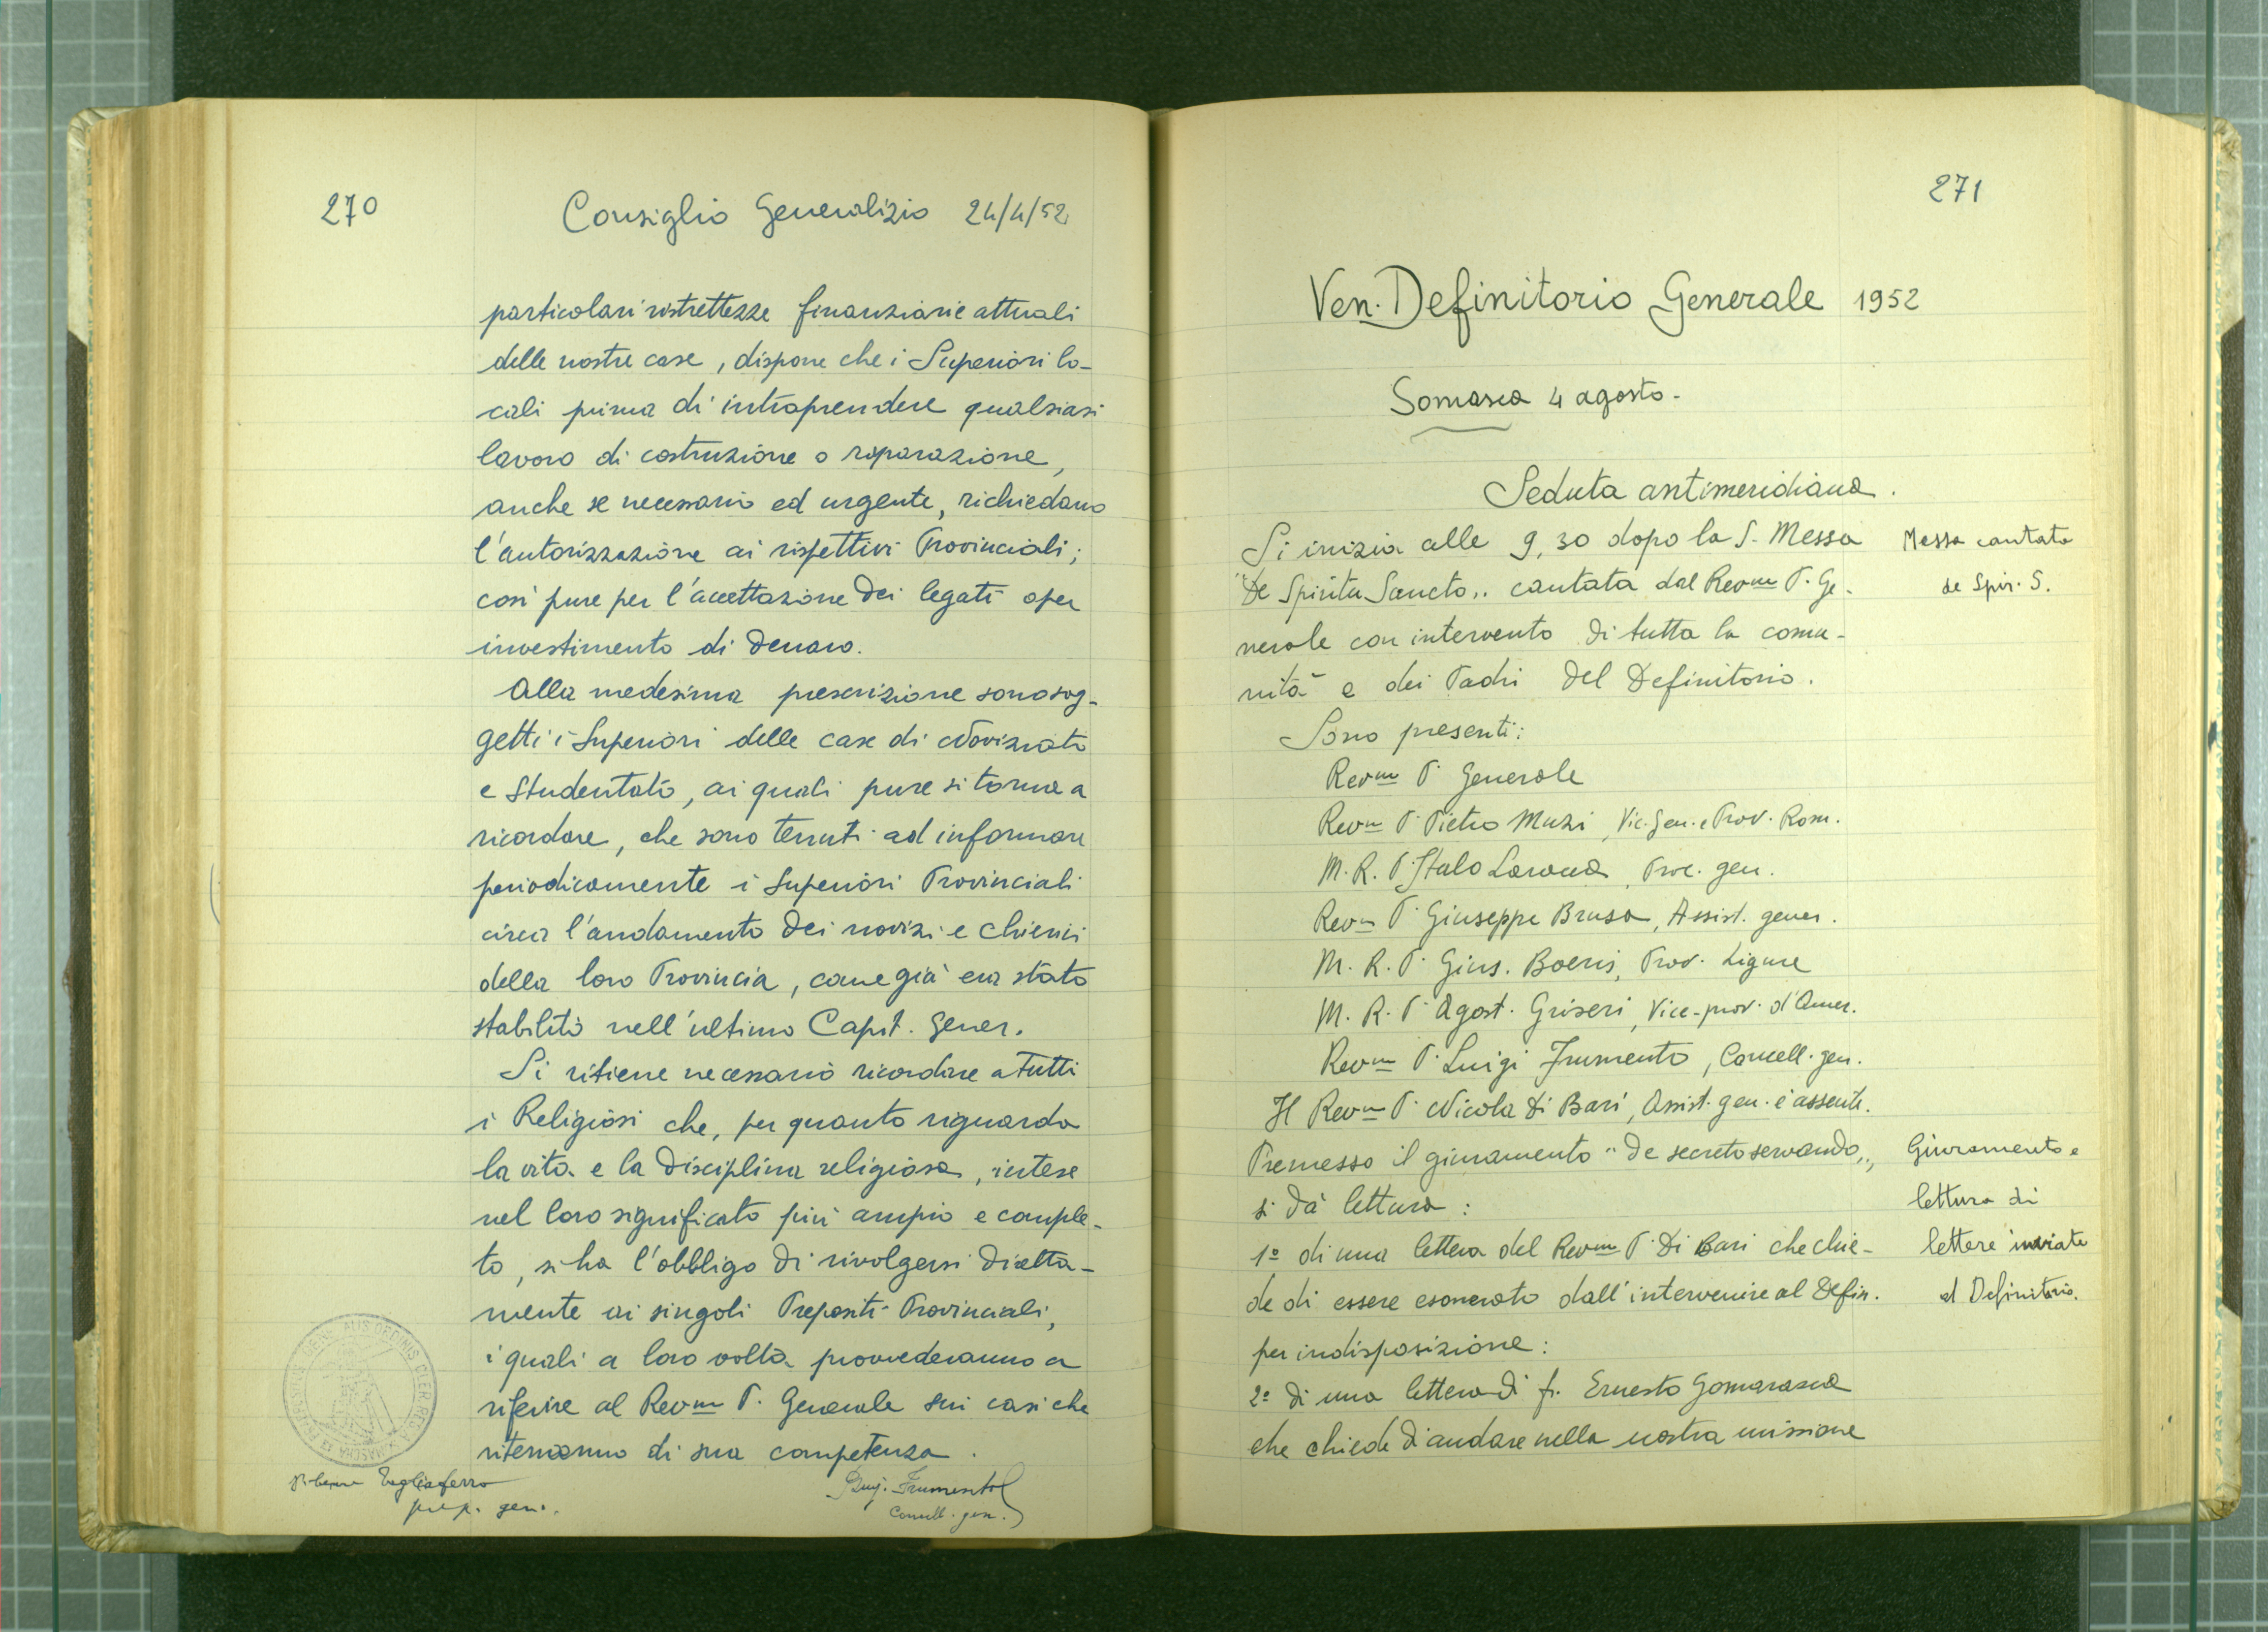 270
Consiglio Generalizio 24/4/52
particolari ristrettezze finanziarie attuali
delle nostre case, dispone che i Superiori lo-
cali prima di intraprendere qualsiasi
lavoro di costruzione o riparazione,
anche se necessario ed urgente, richiedano
l'autorizzazione ai rispettivi Provinciali;
così pure per l'accettazione dei legati o per
investimento di denaro.
Alla medesima prescrizione sono sog-
getti i Superiori delle case di Noviziato
e Studentato, ai quali pure si torna a
ricordare, che sono tenuti ad informare
periodicamente i Superiori Provinciali
circa l'andamento dei novizi e chierici
della loro Provincia, come già era stato
stabilito nell'ultimo Capit. Gener.
Si ritiene necessario ricordare a tutti
i Religiosi che, per quanto riguarda
la vita e la disciplina religiosa, intese
nel loro significato più ampio e comple-
to, si ha l'obbligo di rivolgersi diretta-
mente ai singoli Prepositi Provinciali,
i quali a loro volta provvederanno a
riferire al Revm P. Generale sui casi che
riterranno di sua competenza.
Tagliaferro
prep. gen.
Luig. Frumento
Cancell. gen.
271
Ven. Definitorio Generale 1952
Somasca 4 agosto.
Seduta antimeridiana.
Si inizia alle 9,30 dopo la S. Messa
"De Spiritu Sancto,, cantata dal Revm P. Ge-
nerale con intervento di tutta la comu-
nità e dei Padri del Definitorio.
Messa cantata
de Spir. S.
Sono presenti:
Revm P. Generale
Revm P. Pietro Muzi, Vic. Gen. e Prov. Rom.
M. R. P. Italo Laracca, Proc. gen.
Revm P. Giuseppe Brusa, Assist. gener.
M. R. P. Gius. Boeris, Prov. Ligure
M. R. P. Agost. Griseri, Vice-prov. d'Amer.
Revm P. Luigi Frumento, Cancell. gen.
Il Revm P. Nicola Di Bari, Assist. gen. è assente.
Premesso il giuramento "de secreto servando,,,
si dà lettura:
1º di una lettera del Revm P. Di Bari che chie-
de di essere esonerato dall'intervenire al Defin.
per indisposizione:
2º di una lettera di fr. Ernesto Gomarasca
che chiede d'andare nella nostra missione
Giuramento e
lettura di
lettere inviate
al Definitorio.